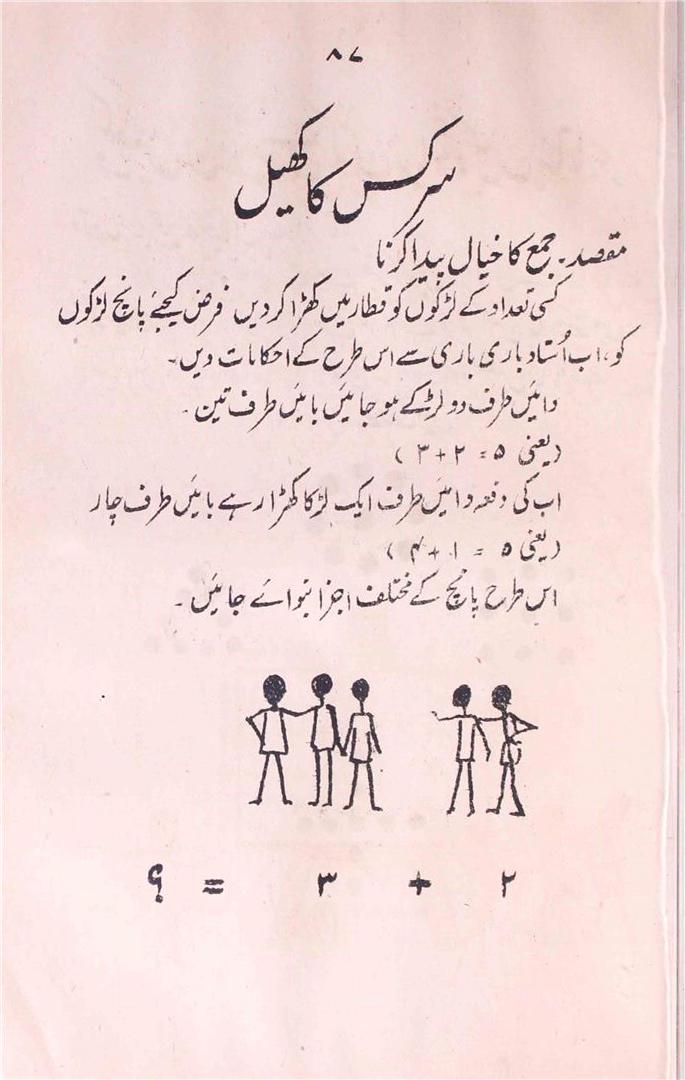 ۸۷
سرکس کا کھیل
مقصد۔ جمع کا خیال پیدا کرنا
کسی تعداد کے لڑکوں کو قطار میں کھڑا کر دیں فرض کیجئے پانچ لڑکوں
کو، اب اُستاد باری باری سے اس طرح کے احکامات دیں۔
دائیں طرف دو لڑکے ہو جائیں بائیں طرف تین۔
(یعنی ۵ = ۲ + ۳)
اب کی دفعہ دائیں طرف ایک لڑکا کھڑا رہے بائیں طرف چار
(یعنی ۵ = ۱ + ۴)
اس طرح پانچ کے مختلف اجزا بنوائے جائیں۔
۲ + ۳ = ؟